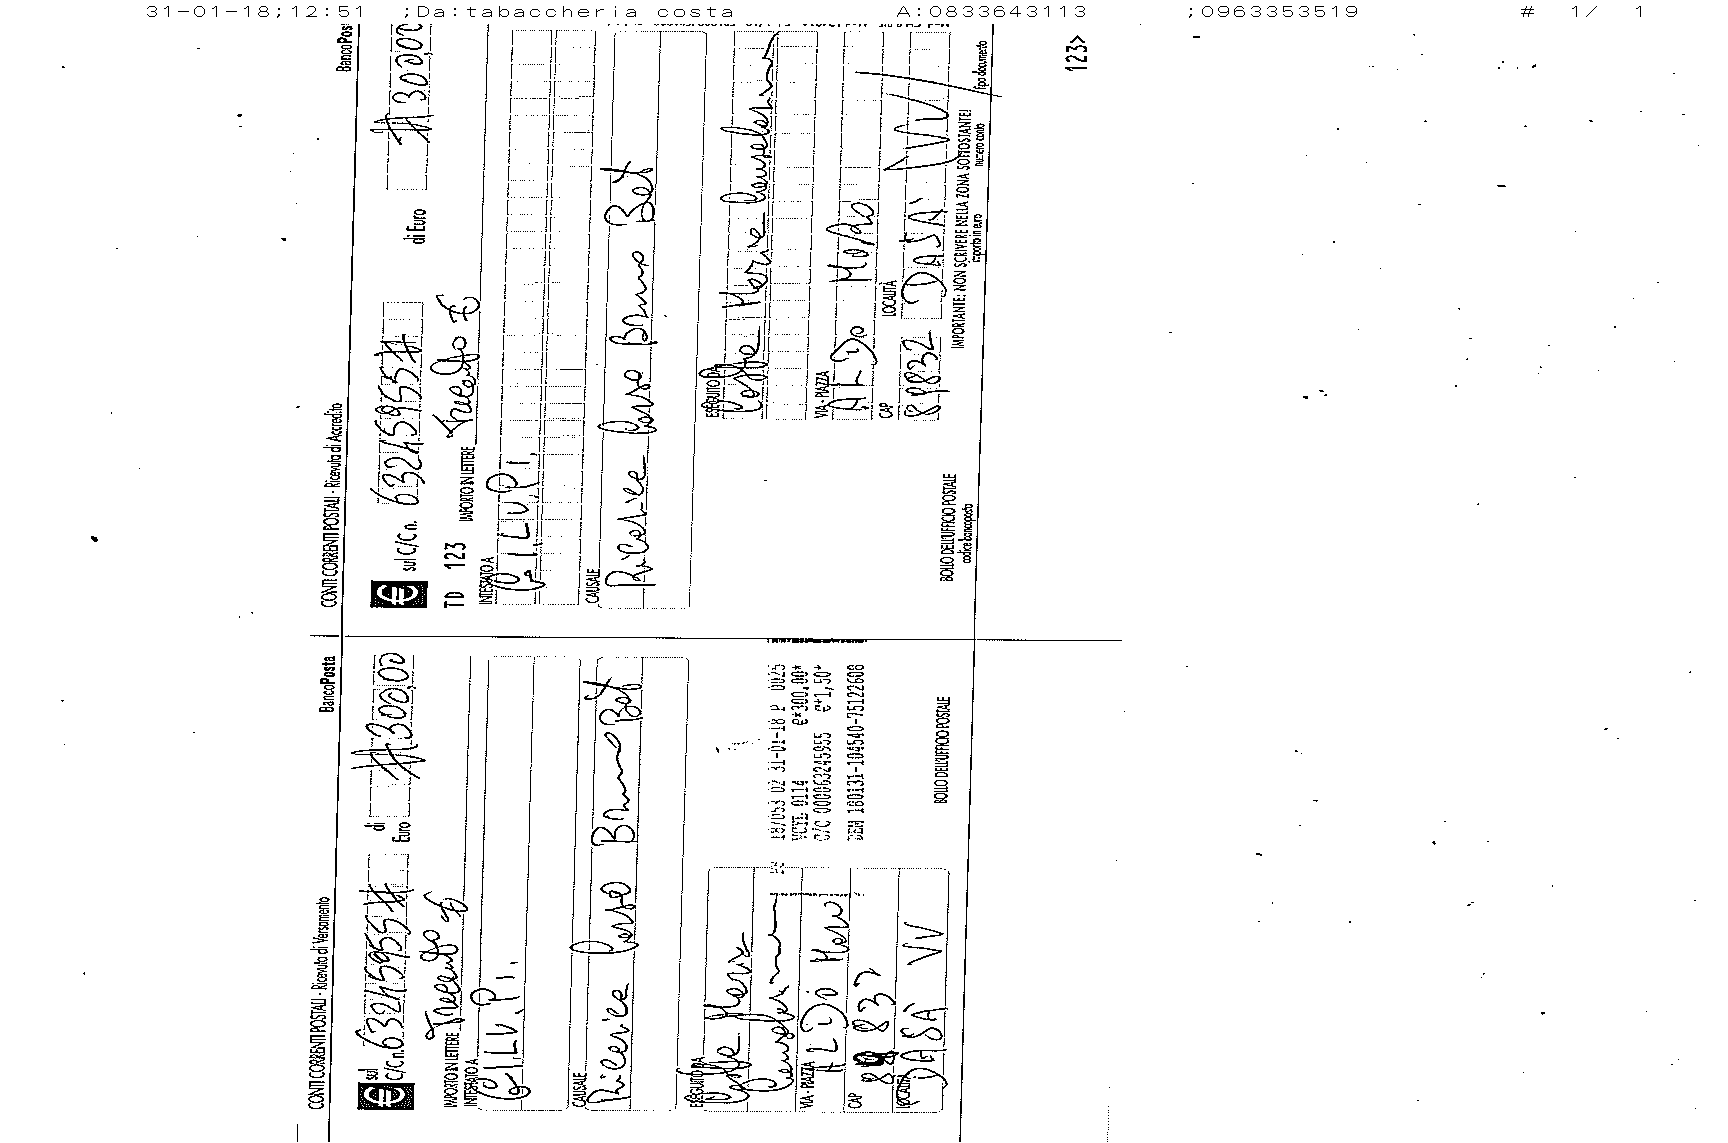 31-01-18;12:51 ;Da:tabaccheria costa A:0833643113 ;0963353519 # 1/ 1
CONTI CORRENTI POSTALI - Ricevuta di Versamento BancoPosta
€ sul C/C n. 63245955# di Euro #300,00
IMPORTO IN LETTERE Trecento €
INTESTATO A
G.I.LU.P.I.
CAUSALE
Ricarica Corso Bruno Bet
ESEGUITO DA
VIA - PIAZZA ALDO Moro
CAP 89832
LOCALITÀ DASÀ VV
18/053 02 31-01-18 P 0025
VCYL 0114 €*300,00*
C/C 000063245955 €*1,50*
DEM 180131-104540-75122608
BOLLO DELL'UFFICIO POSTALE
CONTI CORRENTI POSTALI - Ricevuta di Accredito BancoPost
€ sul C/C n. 63245955# di Euro #300,00
TD 123 IMPORTO IN LETTERE Trecento €
INTESTATO A
G.I.LU.P.I.
CAUSALE
Ricarica Corso Bruno Bet
ESEGUITO DA
VIA - PIAZZA
ALDO MORO
CAP LOCALITÀ
89832 DASA' (VV)
BOLLO DELL'UFFICIO POSTALE
codice bancoposta
IMPORTANTE: NON SCRIVERE NELLA ZONA SOTTOSTANTE!
importo in euro numero conto tipo documento
123>